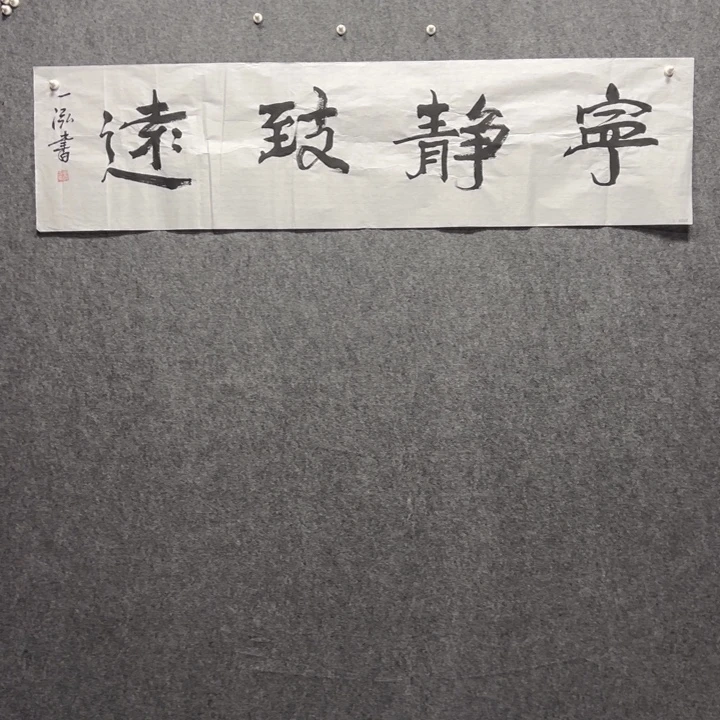 寧靜致遠
一泓書